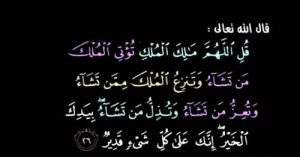 قال الله تعالى :
قُلِ اللَّهُمَّ مَالِكَ الْمُلْكِ تُؤْتِي الْمُلْكَ
مَن تَشَاءُ وَتَنزِعُ الْمُلْكَ مِمَّن تَشَاءُ
وَتُعِزُّ مَن تَشَاءُ وَتُذِلُّ مَن تَشَاءُ ۖ بِيَدِكَ
الْخَيْرُ ۖ إِنَّكَ عَلَىٰ كُلِّ شَيْءٍ قَدِيرٌ ﴿٢٦﴾